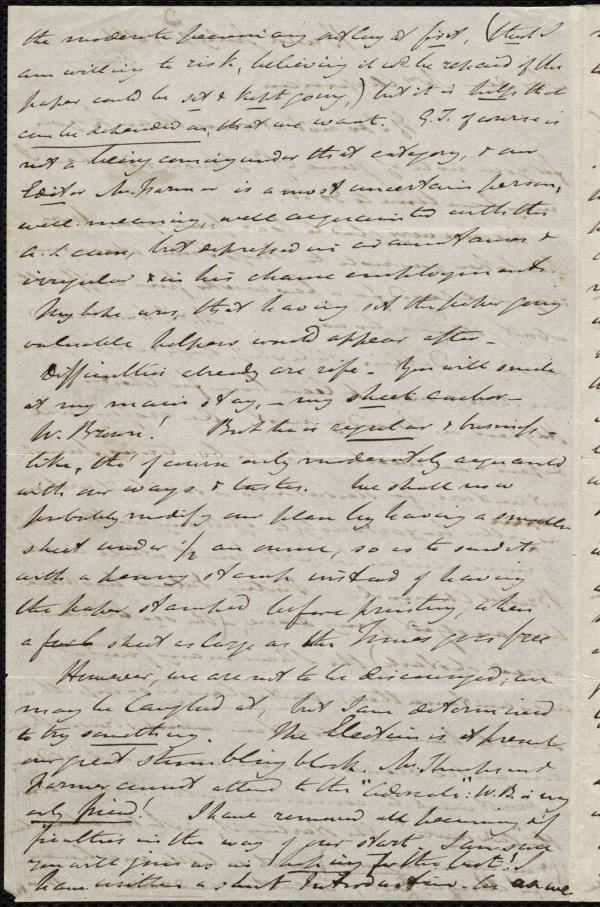 the moderate pecuniary outlay at first, (that I
am willing to risk, believing it wd be repaid if the
paper could be set & kept going,) but it is help that
can be depended on, that we want. G.T. of course is
not a being coming under that category, & our
Editor Mr. Farmer is a most uncertain person,
well-meaning, well acquainted with the
a. s. cause, but depressed in circumstances &
irregular & in his chance employments.
My hope was, that having set the paper going
valuable helpers would appear after -
Difficulties already are rife - You will smile
at my main stay, - my sheet anchor -
W. Brown! But he is regular & business-
like, tho' of course only moderately acquainted
with our ways & tastes. We shall now
probably modify our plan by having a smaller
sheet under ½ an ounce, so as to send it
with a penny stamp instead of having
the paper stamped before printing, when
a full sheet as large as the Times goes free
However, we are not to be discouraged; we
may be laughed at, but I am determined
to try something. The Election is at present
our great stumbling block. Mr. Thompson &
Farmer cannot attend to the "Advocate": W.B. is my
only friend! I have removed all pecuniary dif
ficulties in the way of our start. I am sure
you will join us in hoping for the best! I
have written a short Introduction. as we